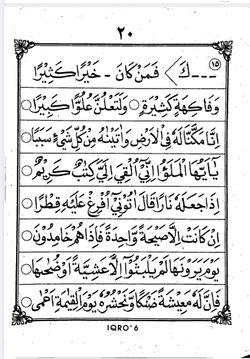 ٢٠
١٥
ـ ـ ـ كَ > فَمَنْ كَانَ - خَيْرًا كَثِيْرًا
وَفَاكِهَةٍ كَثِيْرَةٍ ○ وَلَتَعْلُنَّ عُلُوًّا كَبِيْرًا
اِنَّا مَكَّنَّا لَهٗ فِى الْاَرْضِ وَاٰتَيْنٰهُ مِنْ كُلِّ شَيْءٍ سَبَبًا
يٰٓاَيُّهَا الْمَلَؤُا اِنِّيْٓ اُلْقِيَ اِلَيَّ كِتٰبٌ كَرِيْمٌ
اِذَا جَعَلَهٗ نَارًا قَالَ اٰتُوْنِيْٓ اُفْرِغْ عَلَيْهِ قِطْرًا ○
اِنْ كَانَتْ اِلَّا صَيْحَةً وَّاحِدَةً فَاِذَا هُمْ خَامِدُوْنَ ○
يَوْمَ يَرَوْنَهَا لَمْ يَلْبَثُوْٓا اِلَّا عَشِيَّةً اَوْ ضُحٰىهَا
فَاِنَّ لَهٗ مَعِيْشَةً ضَنْكًا وَّنَحْشُرُهٗ يَوْمَ الْقِيٰمَةِ اَعْمٰى
IQRO'6